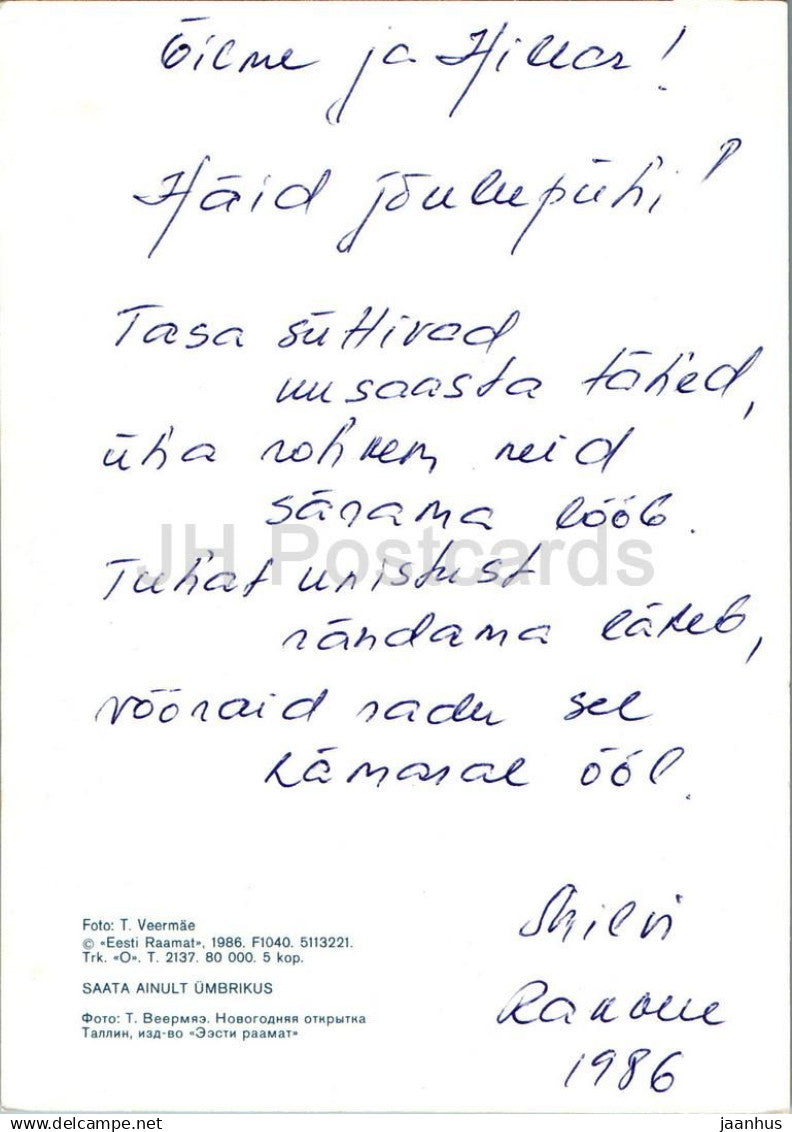 Õilme ja Hillar!
Häid jõulupühi!
Tasa süttivad
uusaasta tähed,
üha rohkem neid
särama lööb.
Tuhat unistust
rändama läheb,
võõraid radu sel
hämaral ööl.
Rakvere
1986
Foto: T. Veermäe
© «Eesti Raamat», 1986. F1040. 5113221.
Trk. «O». T. 2137. 80 000. 5 kop.
SAATA AINULT ÜMBRIKUS
Фото: Т. Веермяэ. Новогодняя открытка
Таллин, изд-во «Ээсти раамат»
JH Postcards
delcampe.net
jaanhus